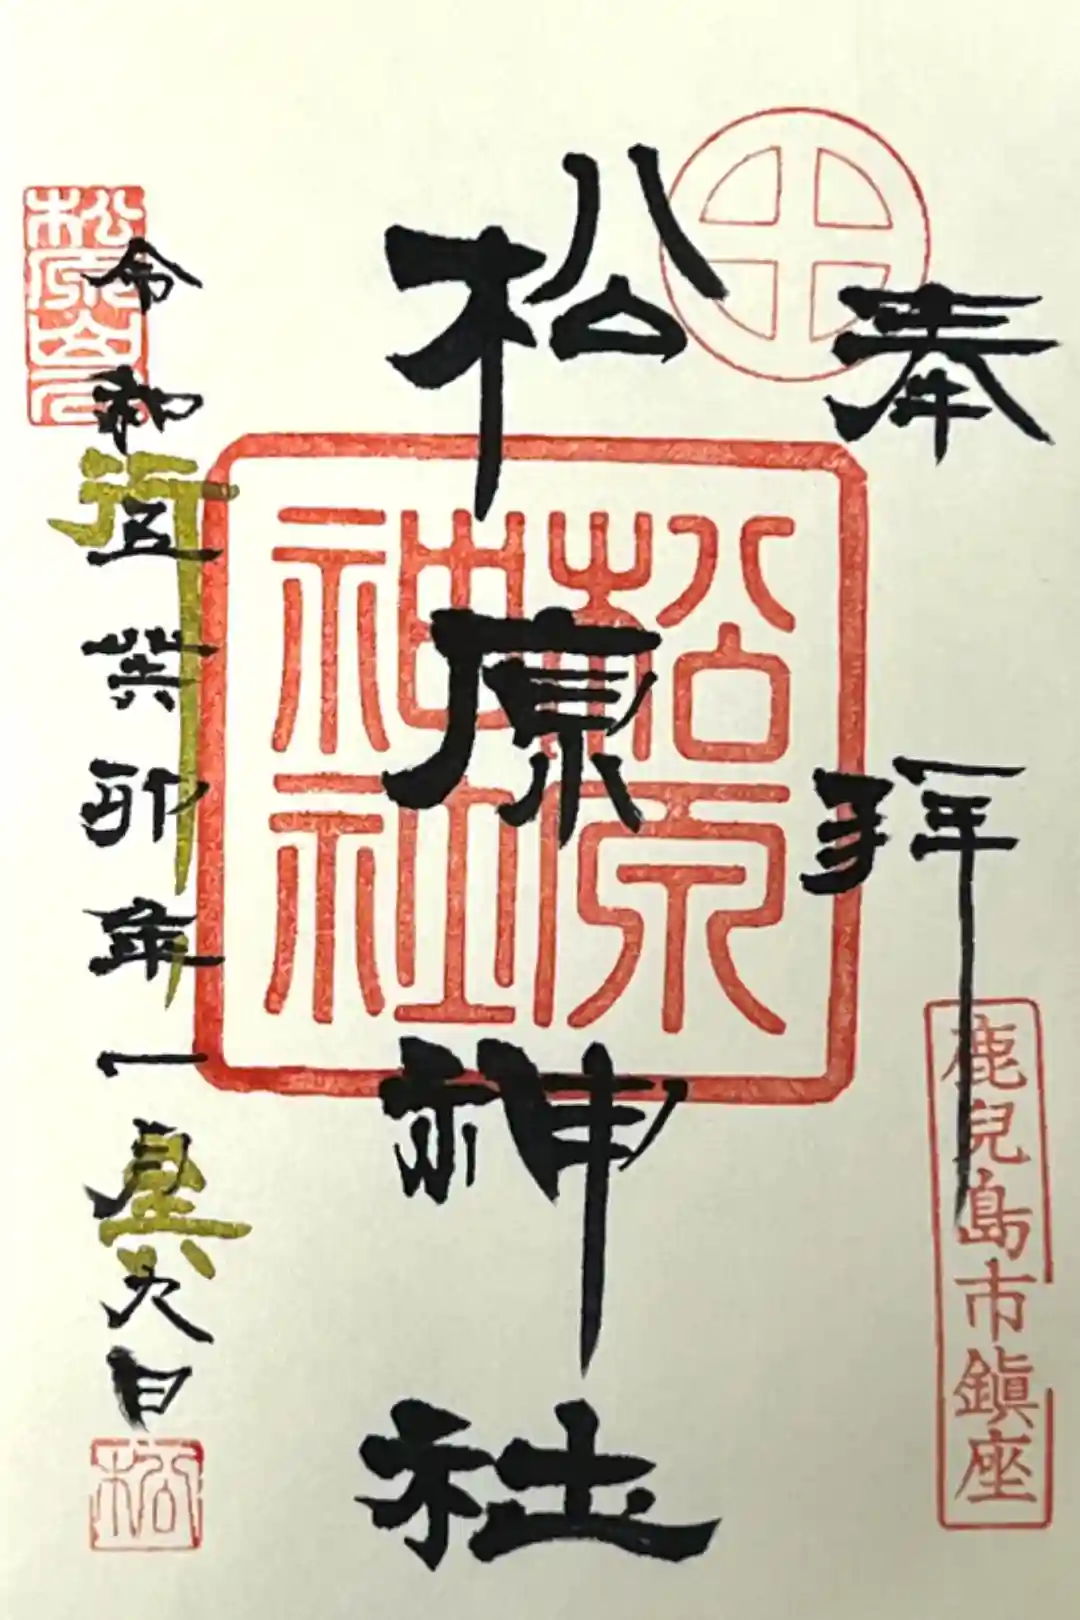 奉拝
鹿兒島市鎮座
松原神社
松原
神社
令和五癸卯年一月九日
松原山
松